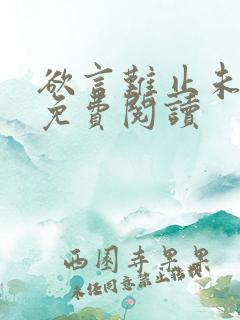 欲言難止未
免費閱讀
西園寺果果
未經同意禁止轉載